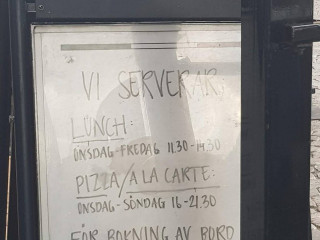 VI SERVERAR:
LUNCH:
ONSDAG-FREDAG 11.30-14.30
PIZZA/Á LA CARTE:
ONSDAG-SÖNDAG 16-21.30
FÖR BOKNING AV BORD